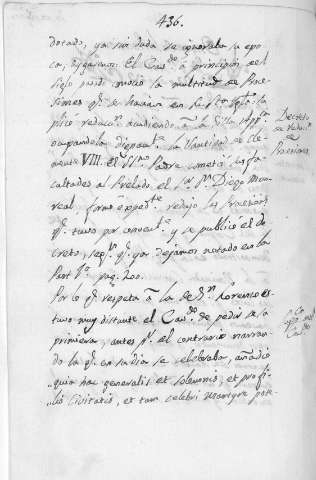 436.
dotado, ya sin duda se ignoraba la epo
ca; digamos: El Cav.do á principios del
siglo pasado movió la multitud de Proce
siones q.e se hacian en la S.ta Igl.a su
plicó reducc.n acudiendo á la Silla App.ca
ocupandola dignam.te la Santidad de Cle
mente VIII. El SS.mo Padre cometió las fa
cultades al Prelado el S.r D.n Diego
real formó exped.te redujo las Procesion.s
q.e tuvo por conven.te y se publicó el de
creto, seg.n q.e ya dejamos notado en la
Part. 1.a pag. 200.
Por lo q.e respeta á la de S.n Lorenzo es
tuvo muy distante el Cav.do de pedir se su
primiera, antes p.r el contrario narran
do la q.e en su dia se celebraba, añadió
"quia hac generalis et solemnis, et pro
"lis Civitatis, et tam celebri Martyre pate
Decreto
de Reducc.n
de
Procesiones